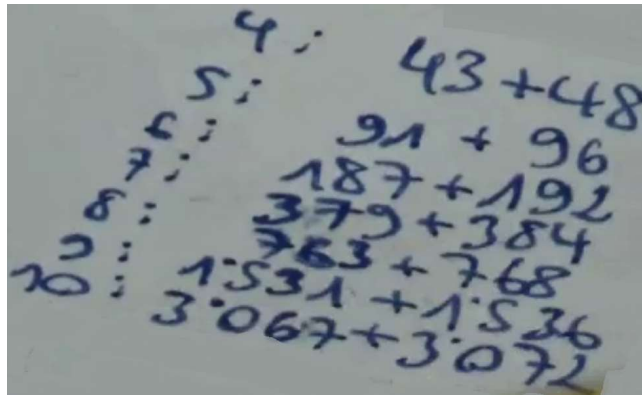 4: 43+48
5: 91 + 96
6: 187+192
7: 379+384
8: 763+768
9: 1·531+1·536
10: 3·067+3·072